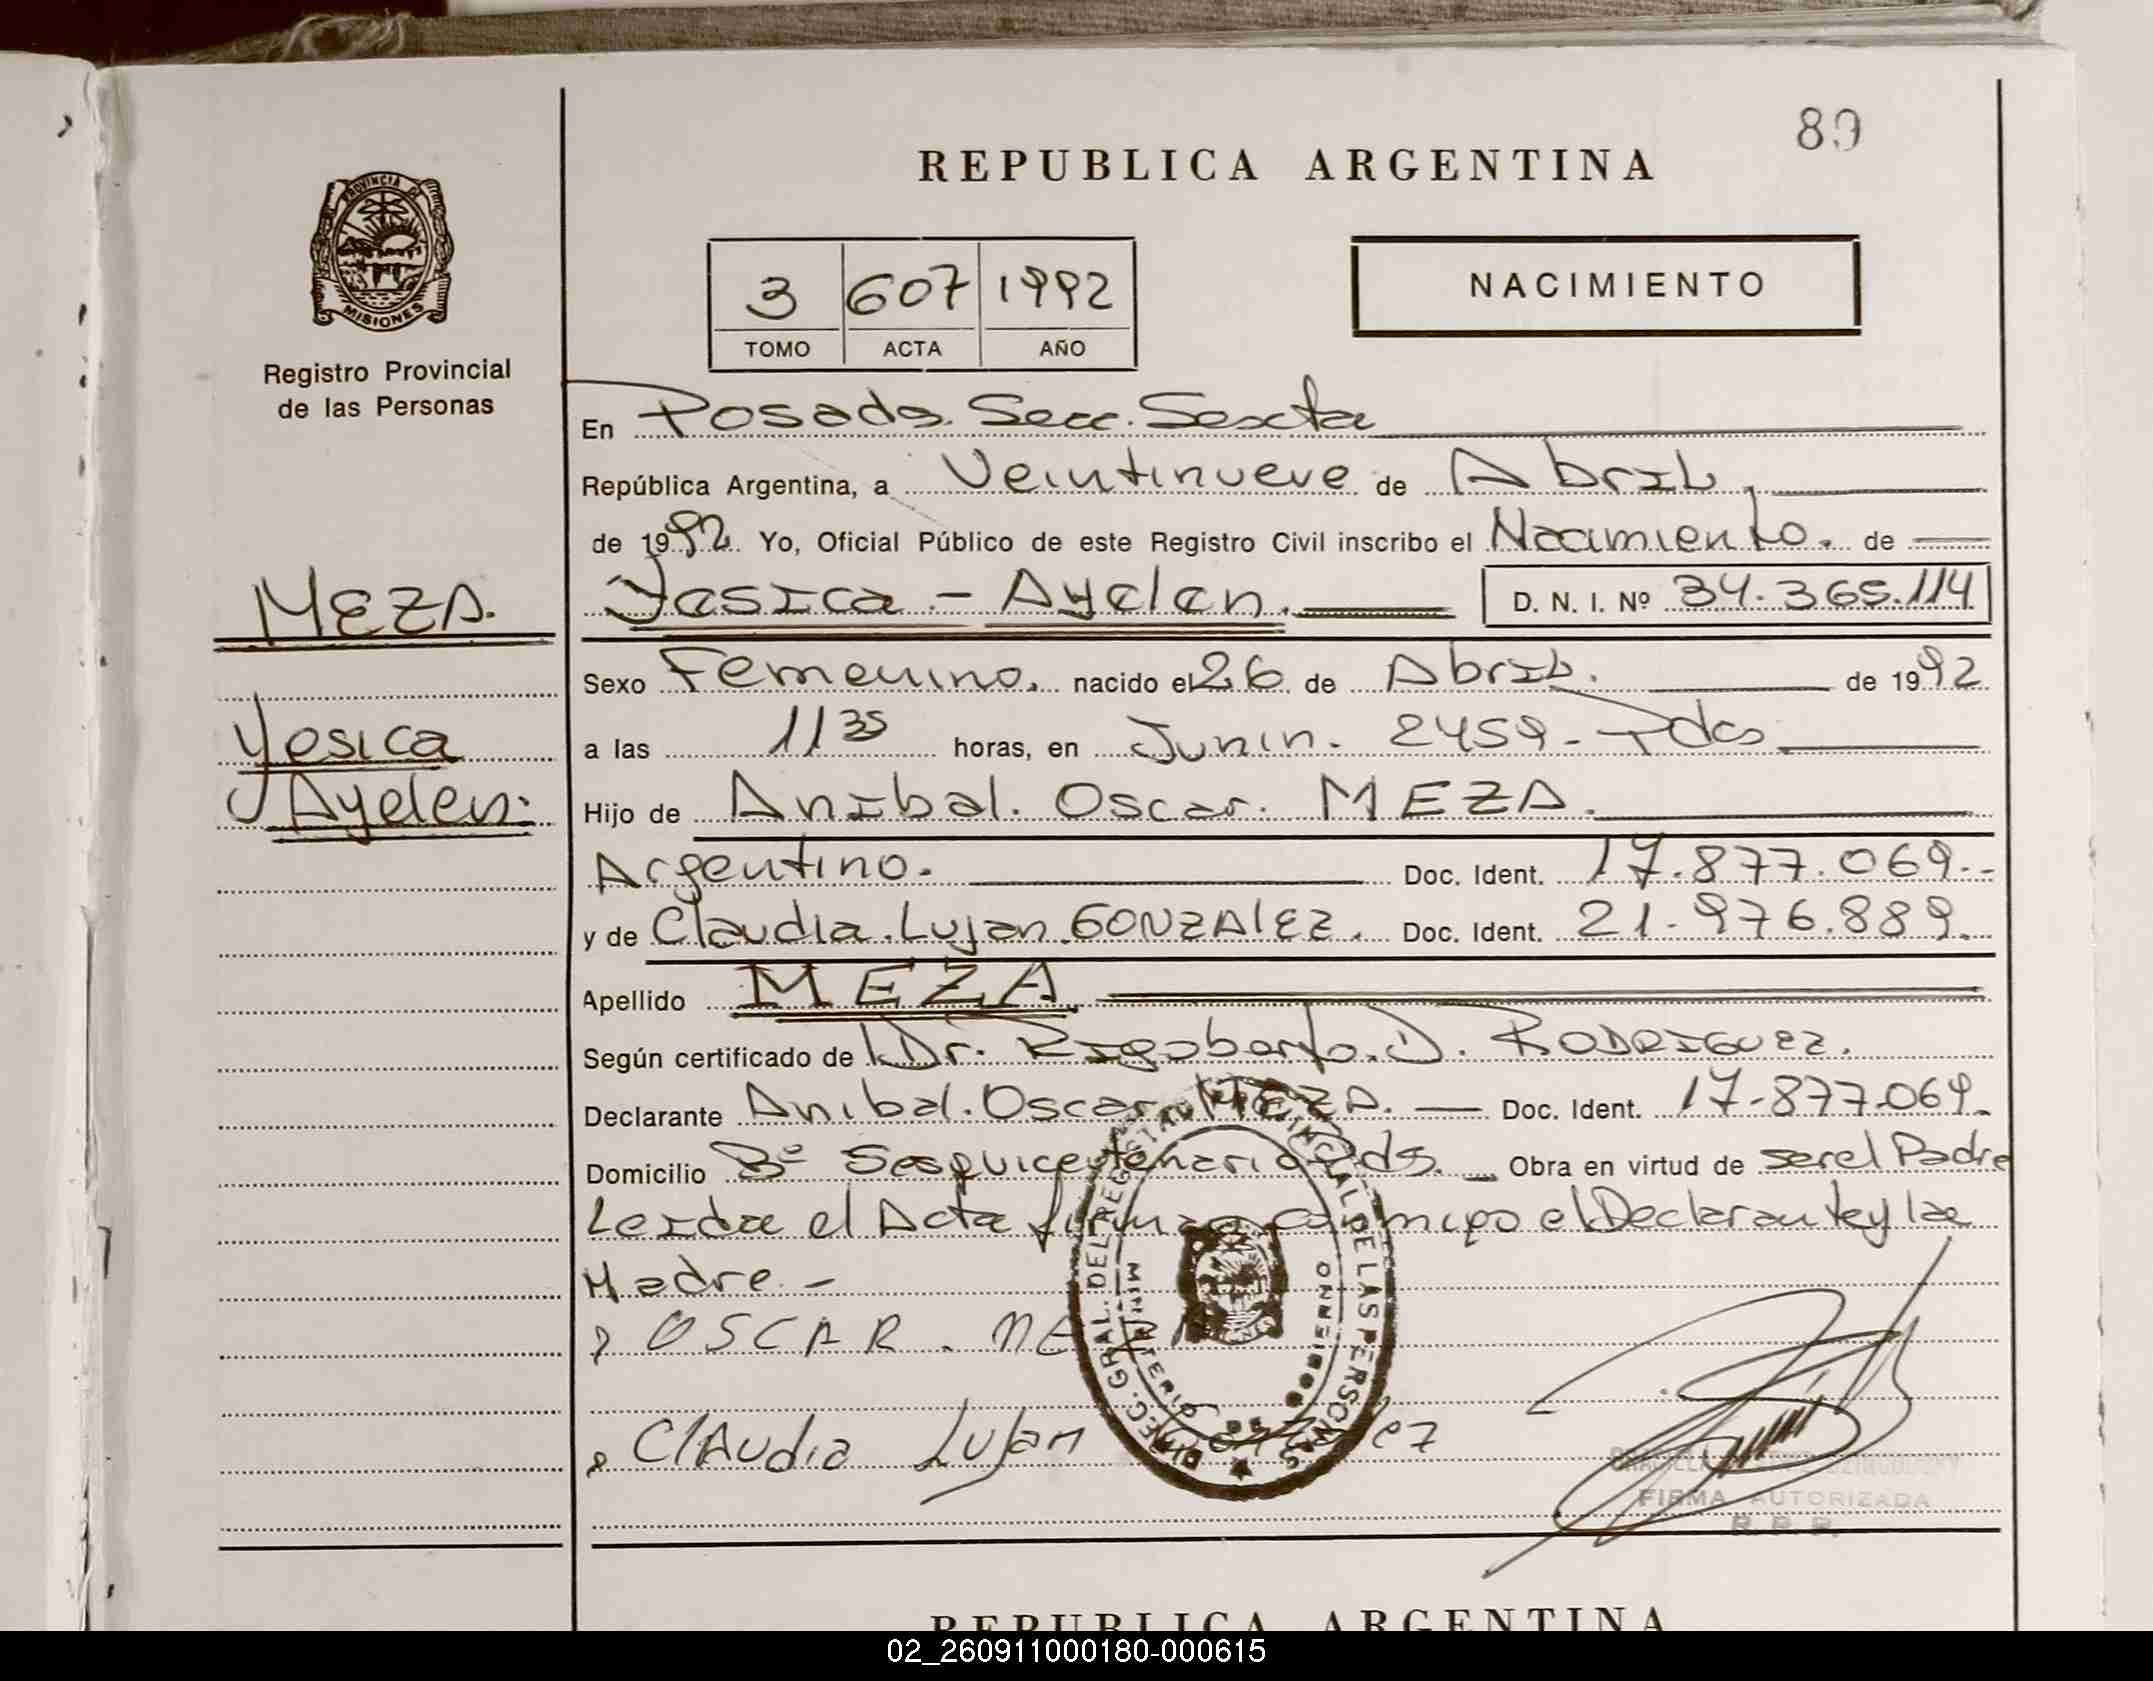 89
REPUBLICA ARGENTINA
PROVINCIA DE
MISIONES
Registro Provincial
de las Personas
3 607 1992
TOMO ACTA AÑO
NACIMIENTO
En Posadas. Secc. Sexta
República Argentina, a Veintinueve de Abril
de 1992. Yo, Oficial Público de este Registro Civil inscribo el Nacimiento. de
MEZA.
Yesica - Ayelen. D. N. I. Nº 34.365.114
Sexo Femenino. nacido el 26 de Abril. de 1992
Yesica
a las 11 35 horas, en Junin. 2459 - Pdas
Ayelen.
Hijo de Anibal. Oscar. MEZA.
Argentino. Doc. Ident. 17.877.069.-
y de Claudia. Lujan. GONZALEZ. Doc. Ident. 21.976.889.
Apellido MEZA
Según certificado de Dr. Rigoberto. D. RODRIGUEZ.
Declarante Anibal. Oscar. MEZA. Doc. Ident. 17.877.069.
Domicilio Bº Sesquicentenario Pds. Obra en virtud de ser el Padre
Leida el Acta firman conmigo el Declarante y la
Madre.-
OSCAR. MEZA
Claudia Lujan Gonzalez
DIREC. GRAL. DEL REGISTRO PROVINCIAL DE LAS PERSONAS
MINISTERIO DE GOBIERNO
FIRMA AUTORIZADA
R. P. P.
REPUBLICA ARGENTINA
02_260911000180-000615